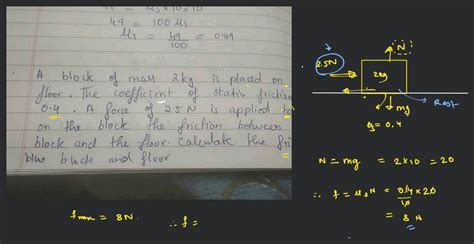 = μs×10×10
49 = 100 μs
μs = 49/100 = 0.49
A block of mass 2kg is placed on
floor. The coefficient of static friction
0.4. A force of 2.5N is applied
on the block the friction between
block and the floor. Calculate the
blw block and floor
fmax = 8N. ∴ f =
N
2.5N
2kg
mg
Rest
μ = 0.4
N = mg = 2×10 = 20
∴ f = μsN = 0.4×20
10
= 8N